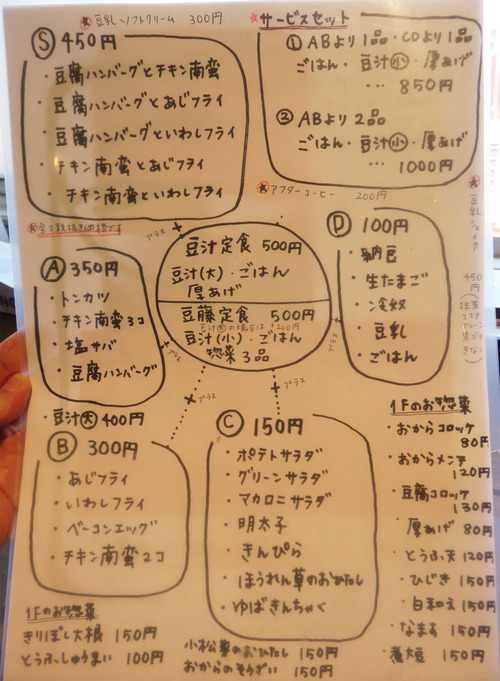 ※豆乳ソフトクリーム 300円
Ⓢ 450円
・豆腐ハンバーグとチキン南蛮
・豆腐ハンバーグとあじフライ
・豆腐ハンバーグといわしフライ
・チキン南蛮とあじフライ
・チキン南蛮といわしフライ
※全て税抜き価格です
※サービスセット
① ABより1品・CDより1品
ごはん・豆汁㊙小・厚あげ
… 850円
② ABより2品
ごはん・豆汁小・厚あげ
… 1000円
※アフターコーヒー 200円
※豆乳シェイク 450円
Ⓐ 350円
・トンカツ
・チキン南蛮3コ
・塩サバ
・豆腐ハンバーグ
・豆汁大 400円
プラス
豆汁定食 500円
豆汁(大)・ごはん
厚あげ
豆藤定食 500円
豆汁大の場合は+200円
豆汁(小)・ごはん
惣菜3品
プラス
プラス
プラス
プラス
Ⓓ 100円
・納豆
・生たまご
・冷奴
・豆乳
・ごはん
Ⓑ 300円
・あじフライ
・いわしフライ
・ベーコンエッグ
・チキン南蛮2コ
Ⓒ 150円
・ポテトサラダ
・グリーンサラダ
・マカロニサラダ
・明太子
・きんぴら
・ほうれん草のおひたし
・ゆばきんちゃく
1Fのお惣菜
・おからコロッケ
80円
・おからメンチ
120円
・豆腐コロッケ
130円
・厚あげ 80円
・とうふ天 120円
・ひじき 150円
・白和え 150円
・なます 150円
・煮大豆 150円
1Fのお惣菜
きりぼし大根 150円
とうふしゅうまい 100円
小松菜のおひたし 150円
おからのそうざい 150円